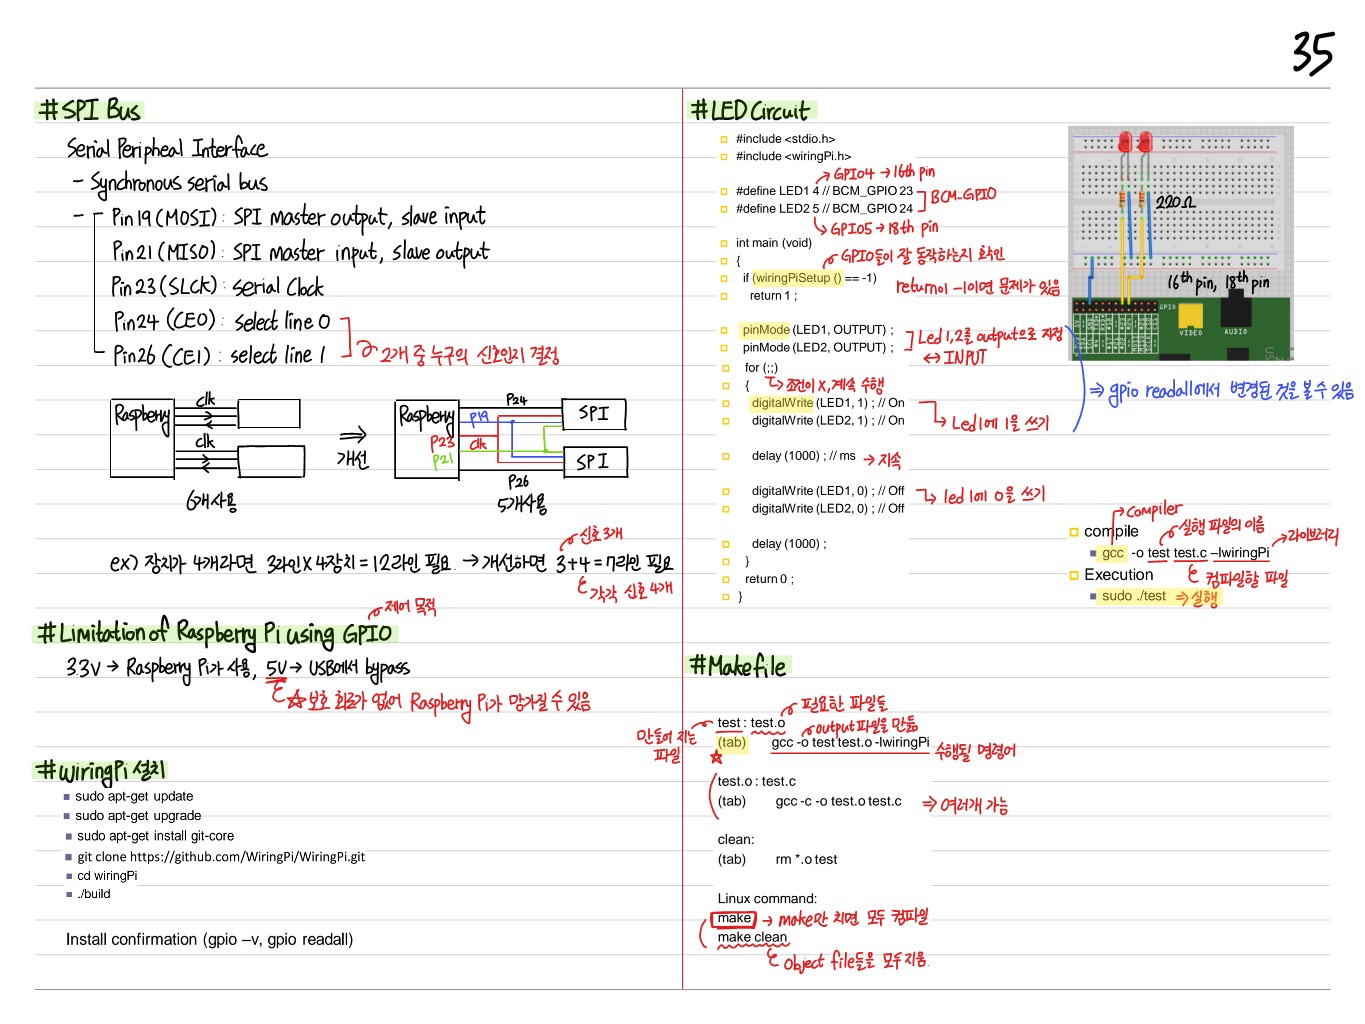 35
#SPI Bus
Serial Peripheal Interface
- Synchronous serial bus
- Pin19(MOSI): SPI master output, slave input
Pin21(MISO): SPI master input, slave output
Pin23(SLCK): Serial Clock
Pin24(CE0): select line 0
Pin26(CE1): select line 1
2개 중 누구의 신호인지 결정
Raspberry
clk
clk
6개사용
⇒
개선
Raspberry
P24
P19
P23
clk
P21
P26
SPI
SPI
5개사용
신호 3개
ex) 장치가 4개라면 3라인 X 4장치 = 12라인 필요. → 개선하면 3+4=7라인 필요
각각 신호 4개
제어 목적
#Limitation of Raspberry Pi using GPIO
3.3V → Raspberry Pi가 사용, 5V → USB에서 bypass
☆보호 회로가 없어 Raspberry Pi가 망가질 수 있음
#WiringPi 설치
sudo apt-get update
sudo apt-get upgrade
sudo apt-get install git-core
git clone https://github.com/WiringPi/WiringPi.git
cd wiringPi
./build
Install confirmation (gpio –v, gpio readall)
#LED Circuit
#include <stdio.h>
#include <wiringPi.h>
→ GPIO4 → 16th pin
#define LED1 4 // BCM_GPIO 23
#define LED2 5 // BCM_GPIO 24
BCM-GPIO
→ GPIO5 → 18th pin
int main (void)
{
GPIO들이 잘 동작하는지 확인
if (wiringPiSetup () == -1)
return 1 ;
return이 -1이면 문제가 있음
pinMode (LED1, OUTPUT) ;
pinMode (LED2, OUTPUT) ;
Led 1,2를 output으로 지정
↔ INPUT
for (;;)
{
→ 조건이 X, 계속 수행
digitalWrite (LED1, 1) ; // On
digitalWrite (LED2, 1) ; // On
→ Led1에 1을 쓰기
⇒ gpio readall에서 변경된 것을 볼 수 있음
delay (1000) ; // ms → 지속
digitalWrite (LED1, 0) ; // Off
digitalWrite (LED2, 0) ; // Off
→ led 1에 0을 쓰기
delay (1000) ;
}
return 0 ;
}
220Ω
16th pin, 18th pin
GPIO
VIDEO
AUDIO
US
→ Compiler
compile
실행 파일의 이름
→ 라이브러리
gcc -o test test.c –lwiringPi
컴파일할 파일
Execution
sudo ./test ⇒ 실행
#Makefile
필요한 파일들
test : test.o
만들어 지는 파일
output 파일을 만듦
(tab) gcc -o test test.o -lwiringPi
☆
수행될 명령어
test.o : test.c
(tab) gcc -c -o test.o test.c
⇒ 여러개 가능
clean:
(tab) rm *.o test
Linux command:
make → make만 치면 모두 컴파일
make clean
Object file들을 모두 지움.